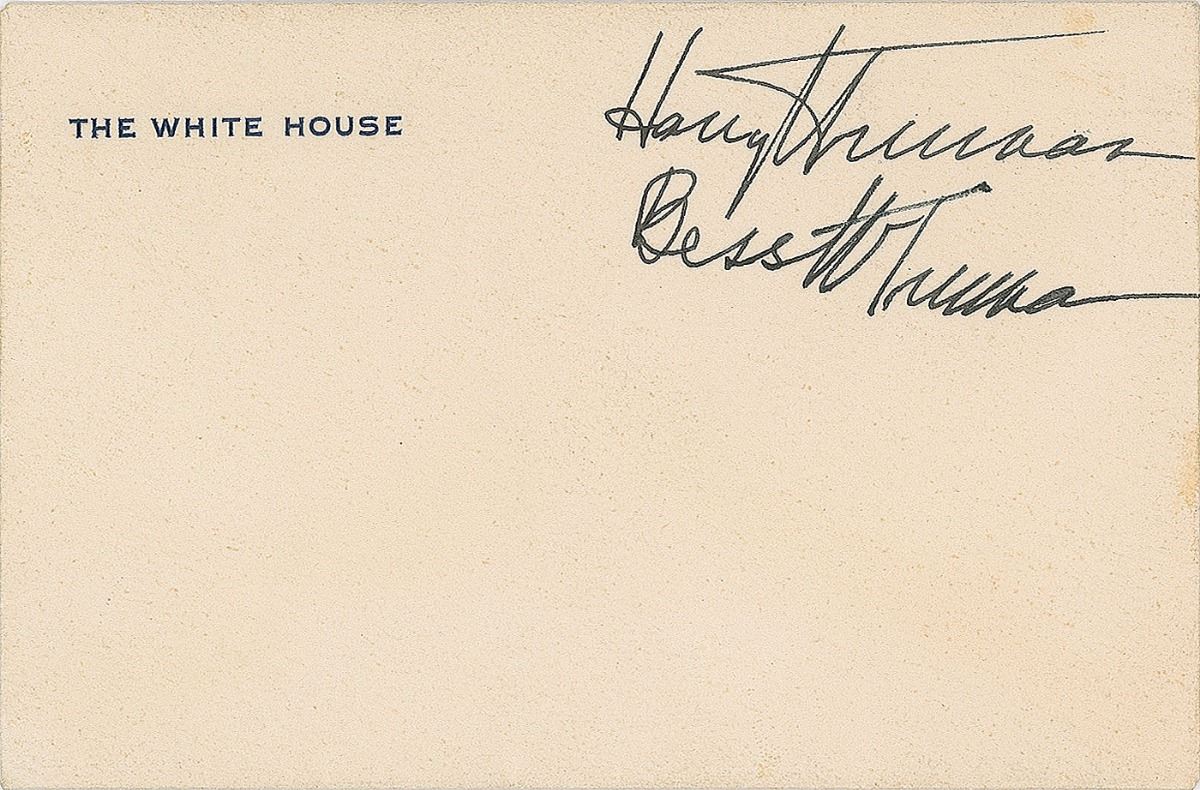 THE WHITE HOUSE
Harry Truman
Bess W Truman